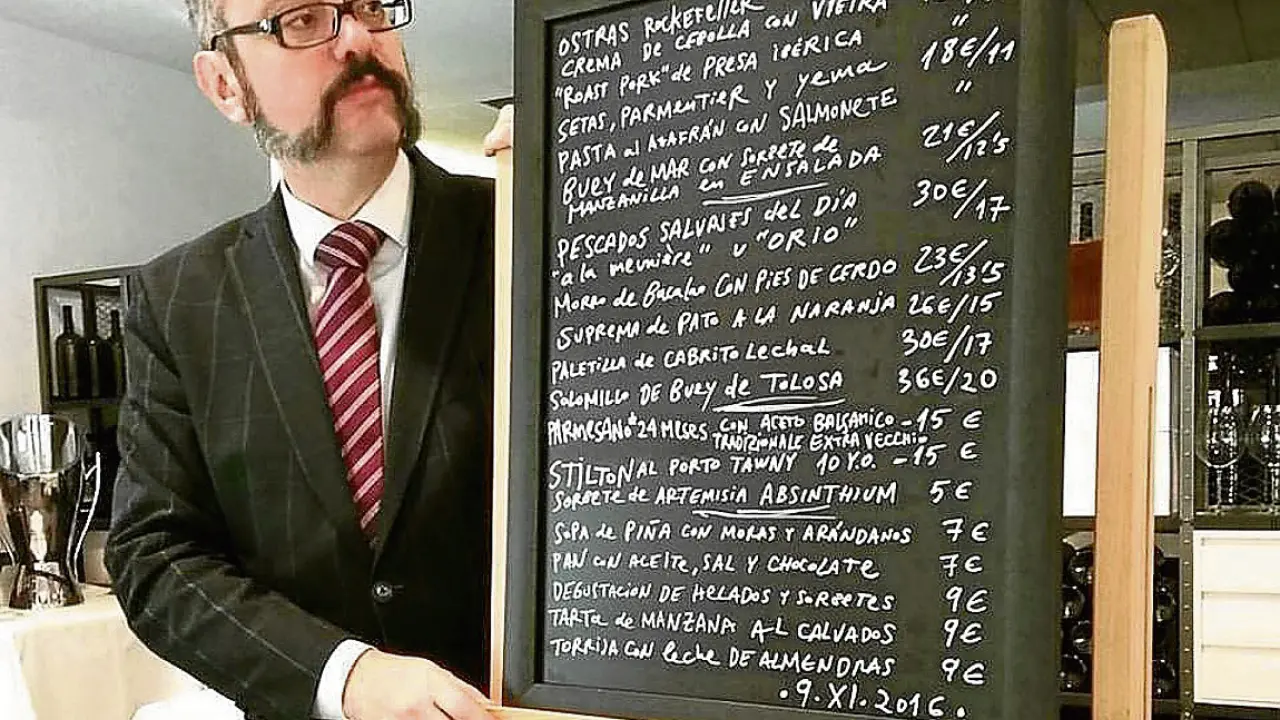 OSTRAS ROCKEFELLER
CREMA DE CEBOLLA CON VIEIRA "
"ROAST PORK" de PRESA IBÉRICA 18€/11
SETAS, PARMENTIER Y yema "
PASTA al AZAFRÁN CON SALMONETE 21€/12'5
BUEY de MAR CON SORBETE de
MANZANILLA en ENSALADA 30€/17
PESCADOS SALVAJES del DÍA
"a la meunière" u "ORIO"
Morro de Bacalao CON PIES DE CERDO 23€/13'5
SUPREMA de PATO A LA NARANJA 26€/15
PALETILLA de CABRITO Lechal 30€/17
SOLOMILLO DE BUEY de TOLOSA 36€/20
PARMESANO 24 MESES CON ACETO BALSAMICO - 15 €
TRADIZIONALE EXTRA VECCHIO
STILTON AL PORTO TAWNY 10 Y.O. - 15 €
SORBETE de ARTEMISIA ABSINTHIUM 5€
SOPA de PIÑA CON MORAS Y ARÁNDANOS 7€
PAN CON ACEITE, SAL Y CHOCOLATE 7€
DEGUSTACION DE HELADOS Y SORBETES 9€
TARTA de MANZANA AL CALVADOS 9€
TORRIJA CON leche DE ALMENDRAS 9€
.9.XI.2016.